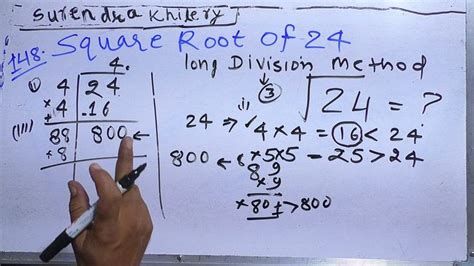 Surendra Khilery
148. Square Root Of 24
long Division method
③
4.
(i) 4 | 24
× 4 | -16
(iii) 88 | 800 ←
× 8
ii)
√24 = ?
24 ⇒ 4 × 4 = 16 < 24
× 5 × 5 = 25 > 24
800 ←
89
× 9
× 801 > 800